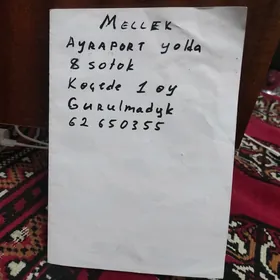 MELLEK
AYRAPORT yolda
8 sotok
Koçede 1 oy
Gurulmadyk
62 650355